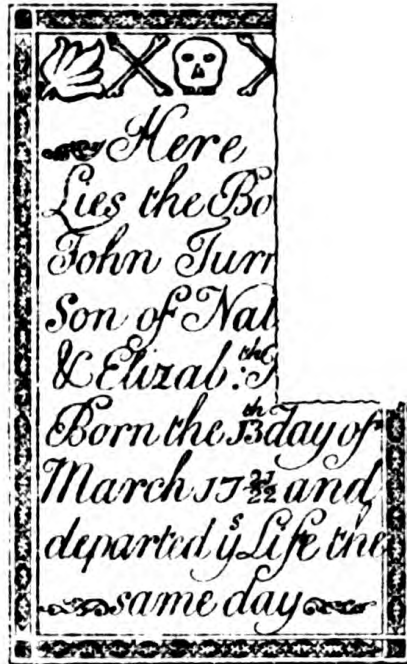 Here
Lies the Bo
John Turn
Son of Nat
& Elizab:th T
Born the 13th day of
March 17 21/22 and
departed ys Life the
same day